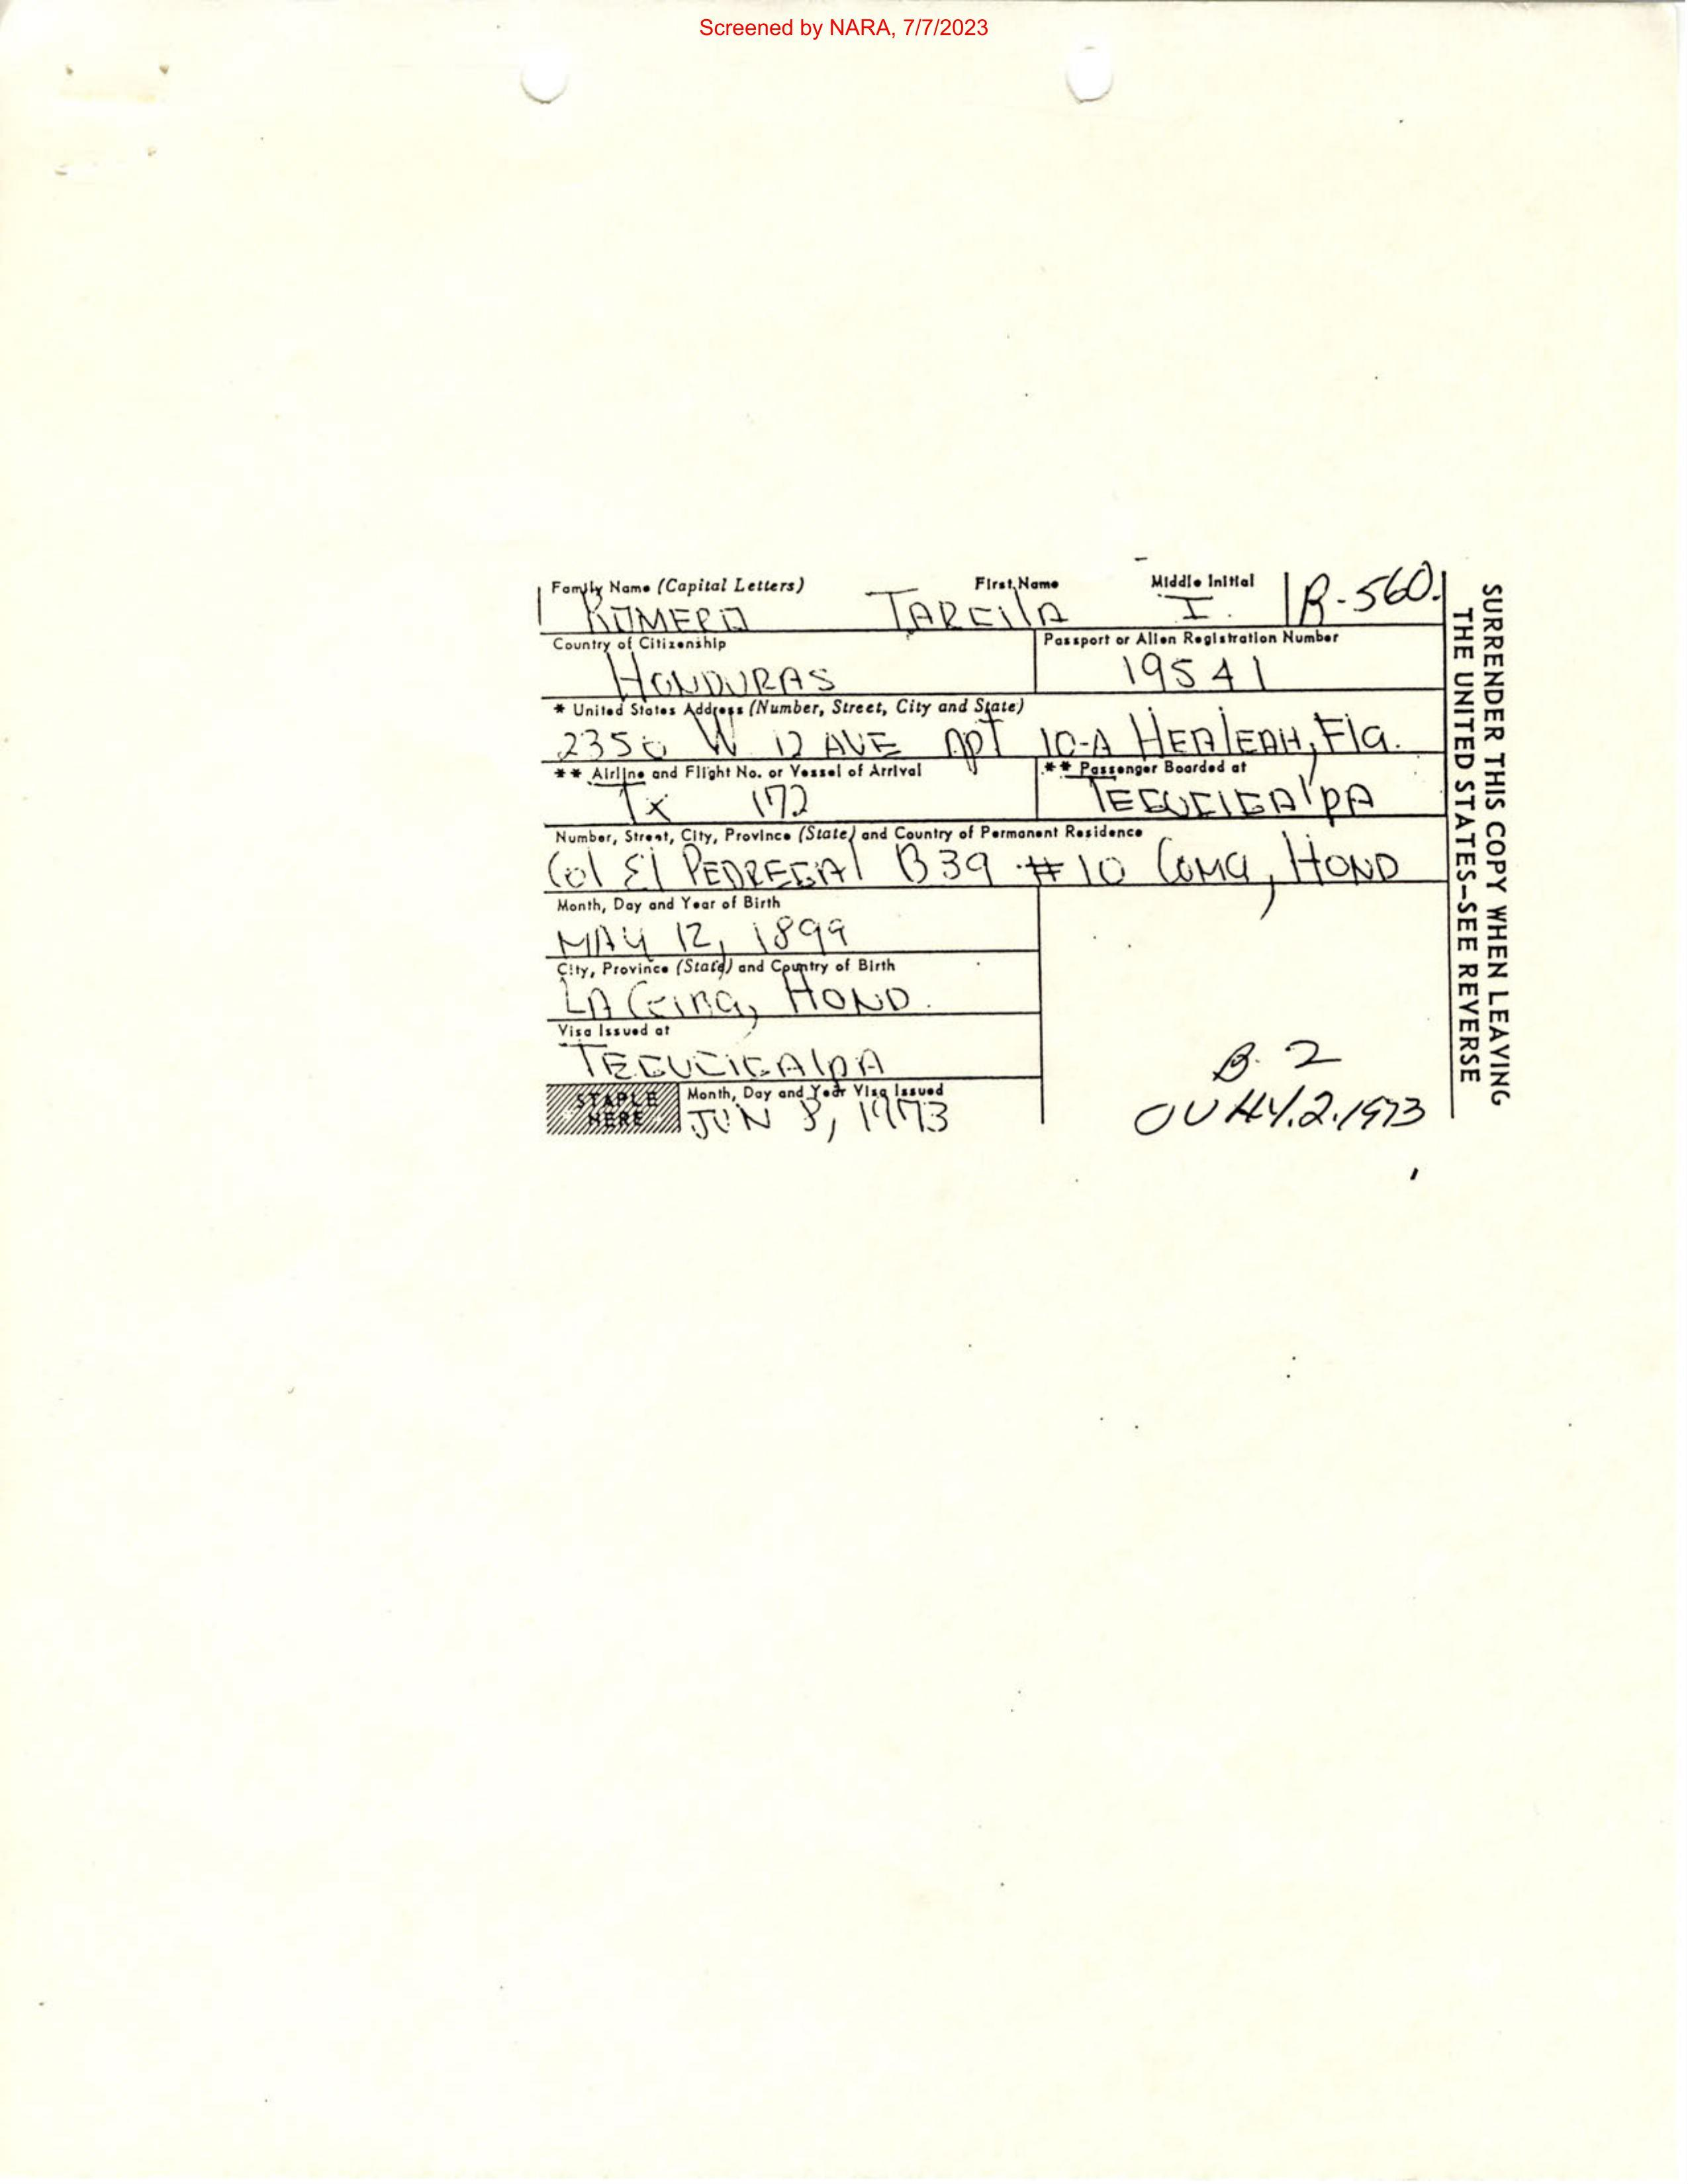 Screened by NARA, 7/7/2023
Family Name (Capital Letters) First Name Middle Initial
ROMERO TARCIlA I. R-560.
Country of Citizenship Passport or Alien Registration Number
HONDURAS 19541
* United States Address (Number, Street, City and State)
2350 W 12 AVE APT 10-A HEAlEAH, Fla.
** Airline and Flight No. or Vessel of Arrival ** Passenger Boarded at
Tx 172 TEGUCIGAlpA
Number, Street, City, Province (State) and Country of Permanent Residence
Col El PEDREGAl B39 #10 COMG, HOND
Month, Day and Year of Birth
MAY 12, 1899
City, Province (State) and Country of Birth
LA CEIBA, HOND.
Visa Issued at
TEGUCIGAlpA
STAPLE HERE
Month, Day and Year Visa Issued
JUN 8, 1973
B.2
2.1973
SURRENDER THIS COPY WHEN LEAVING
THE UNITED STATES-SEE REVERSE